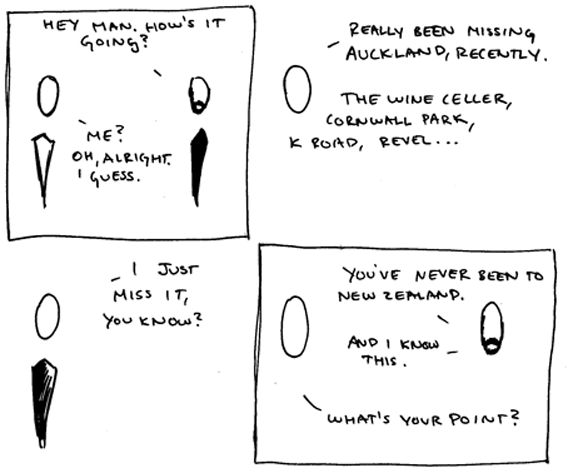 HEY MAN. HOW'S IT
GOING?
ME?
OH, ALRIGHT.
I GUESS.
REALLY BEEN MISSING
AUCKLAND, RECENTLY.
THE WINE CELLER,
CORNWALL PARK,
K ROAD, REVEL...
I JUST
MISS IT,
YOU KNOW?
YOU'VE NEVER BEEN TO
NEW ZEALAND.
AND I KNOW
THIS.
WHAT'S YOUR POINT?